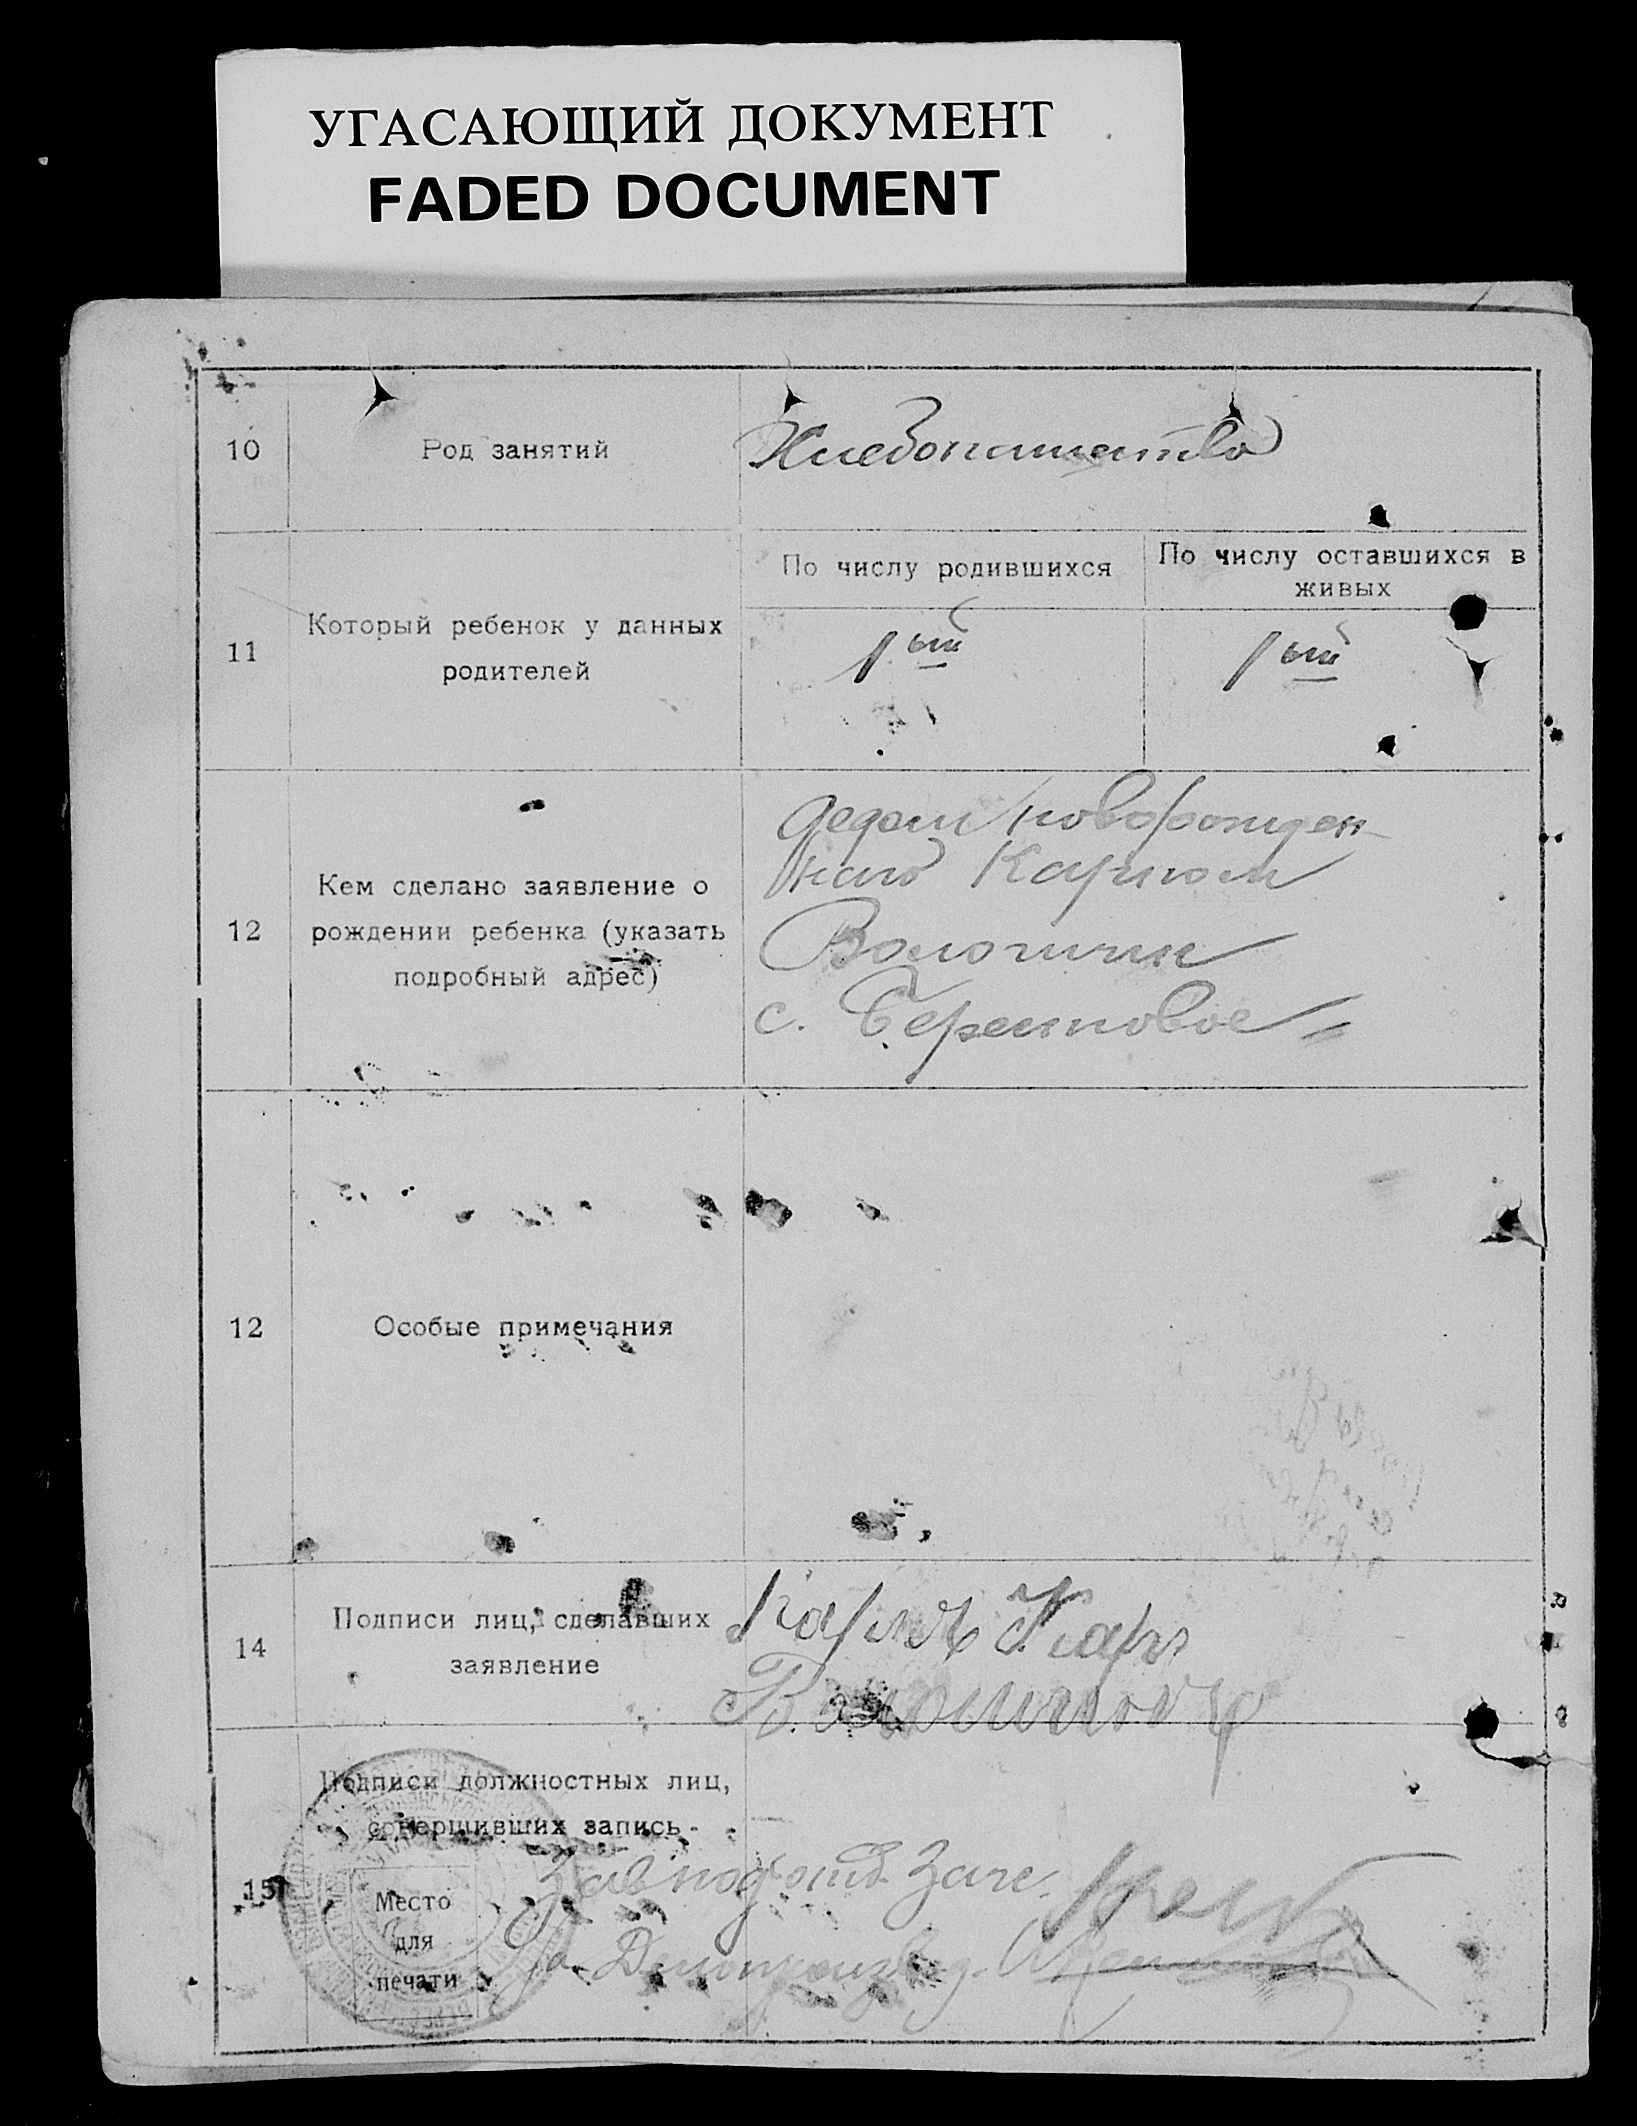 УГАСАЮЩИЙ ДОКУМЕНТ
FADED DOCUMENT
10
Род занятий
Хлебопашество
11
Который ребенок у данных
родителей
По числу родившихся
По числу оставшихся в
живых
1ый
1ый
12
Кем сделано заявление о
рождении ребенка (указать
подробный адрес)
Дедом новорожден-
наго Карпом
с. Берестовое
12
Особые примечания
14
Подписи лиц, сделавших
заявление
15
Подписи должностных лиц,
совершивших запись
Место
для
печати
Зав под отд. Загс.
Делопроизвод.